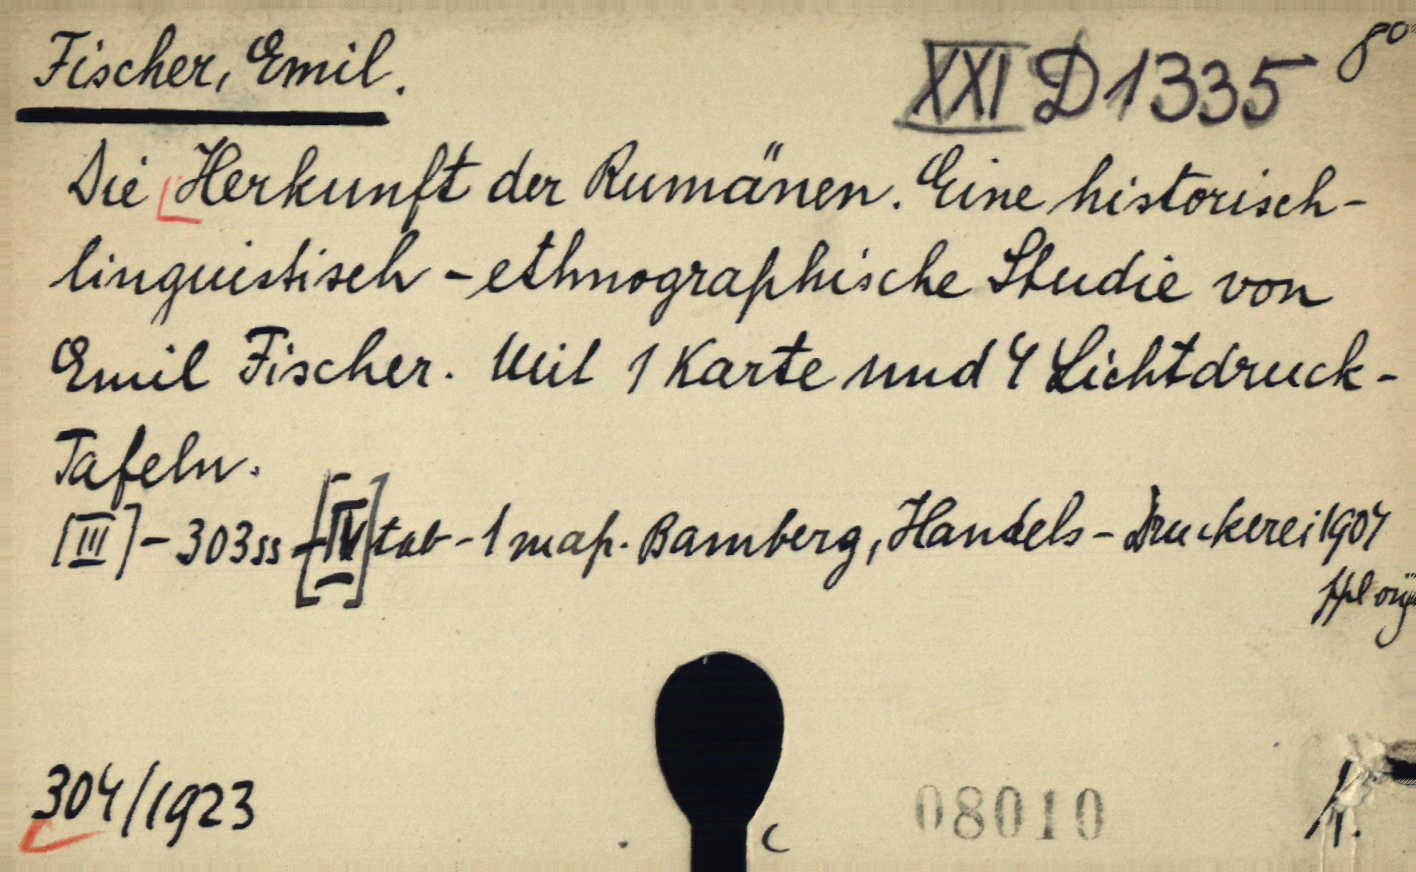 Fischer, Emil.
XXI D 1335 8°
Die Herkunft der Rumänen. Eine historisch-
linguistisch-ethnographische Studie von
Emil Fischer. Mit 1 Karte und 4 Lichtdruck-
Tafeln.
[III]-303 ss-[IV] tab-1 map. Bamberg, Handels-Druckerei 1904
304/1923
08010